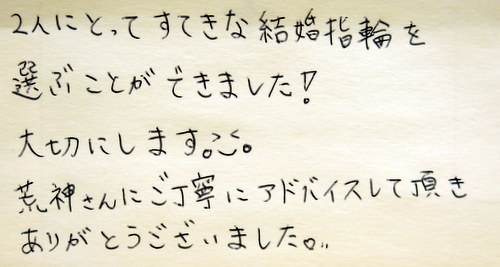 2人にとってすてきな結婚指輪を
選ぶことができました!
大切にします。
荒神さんにご丁寧にアドバイスして頂き
ありがとうございました。